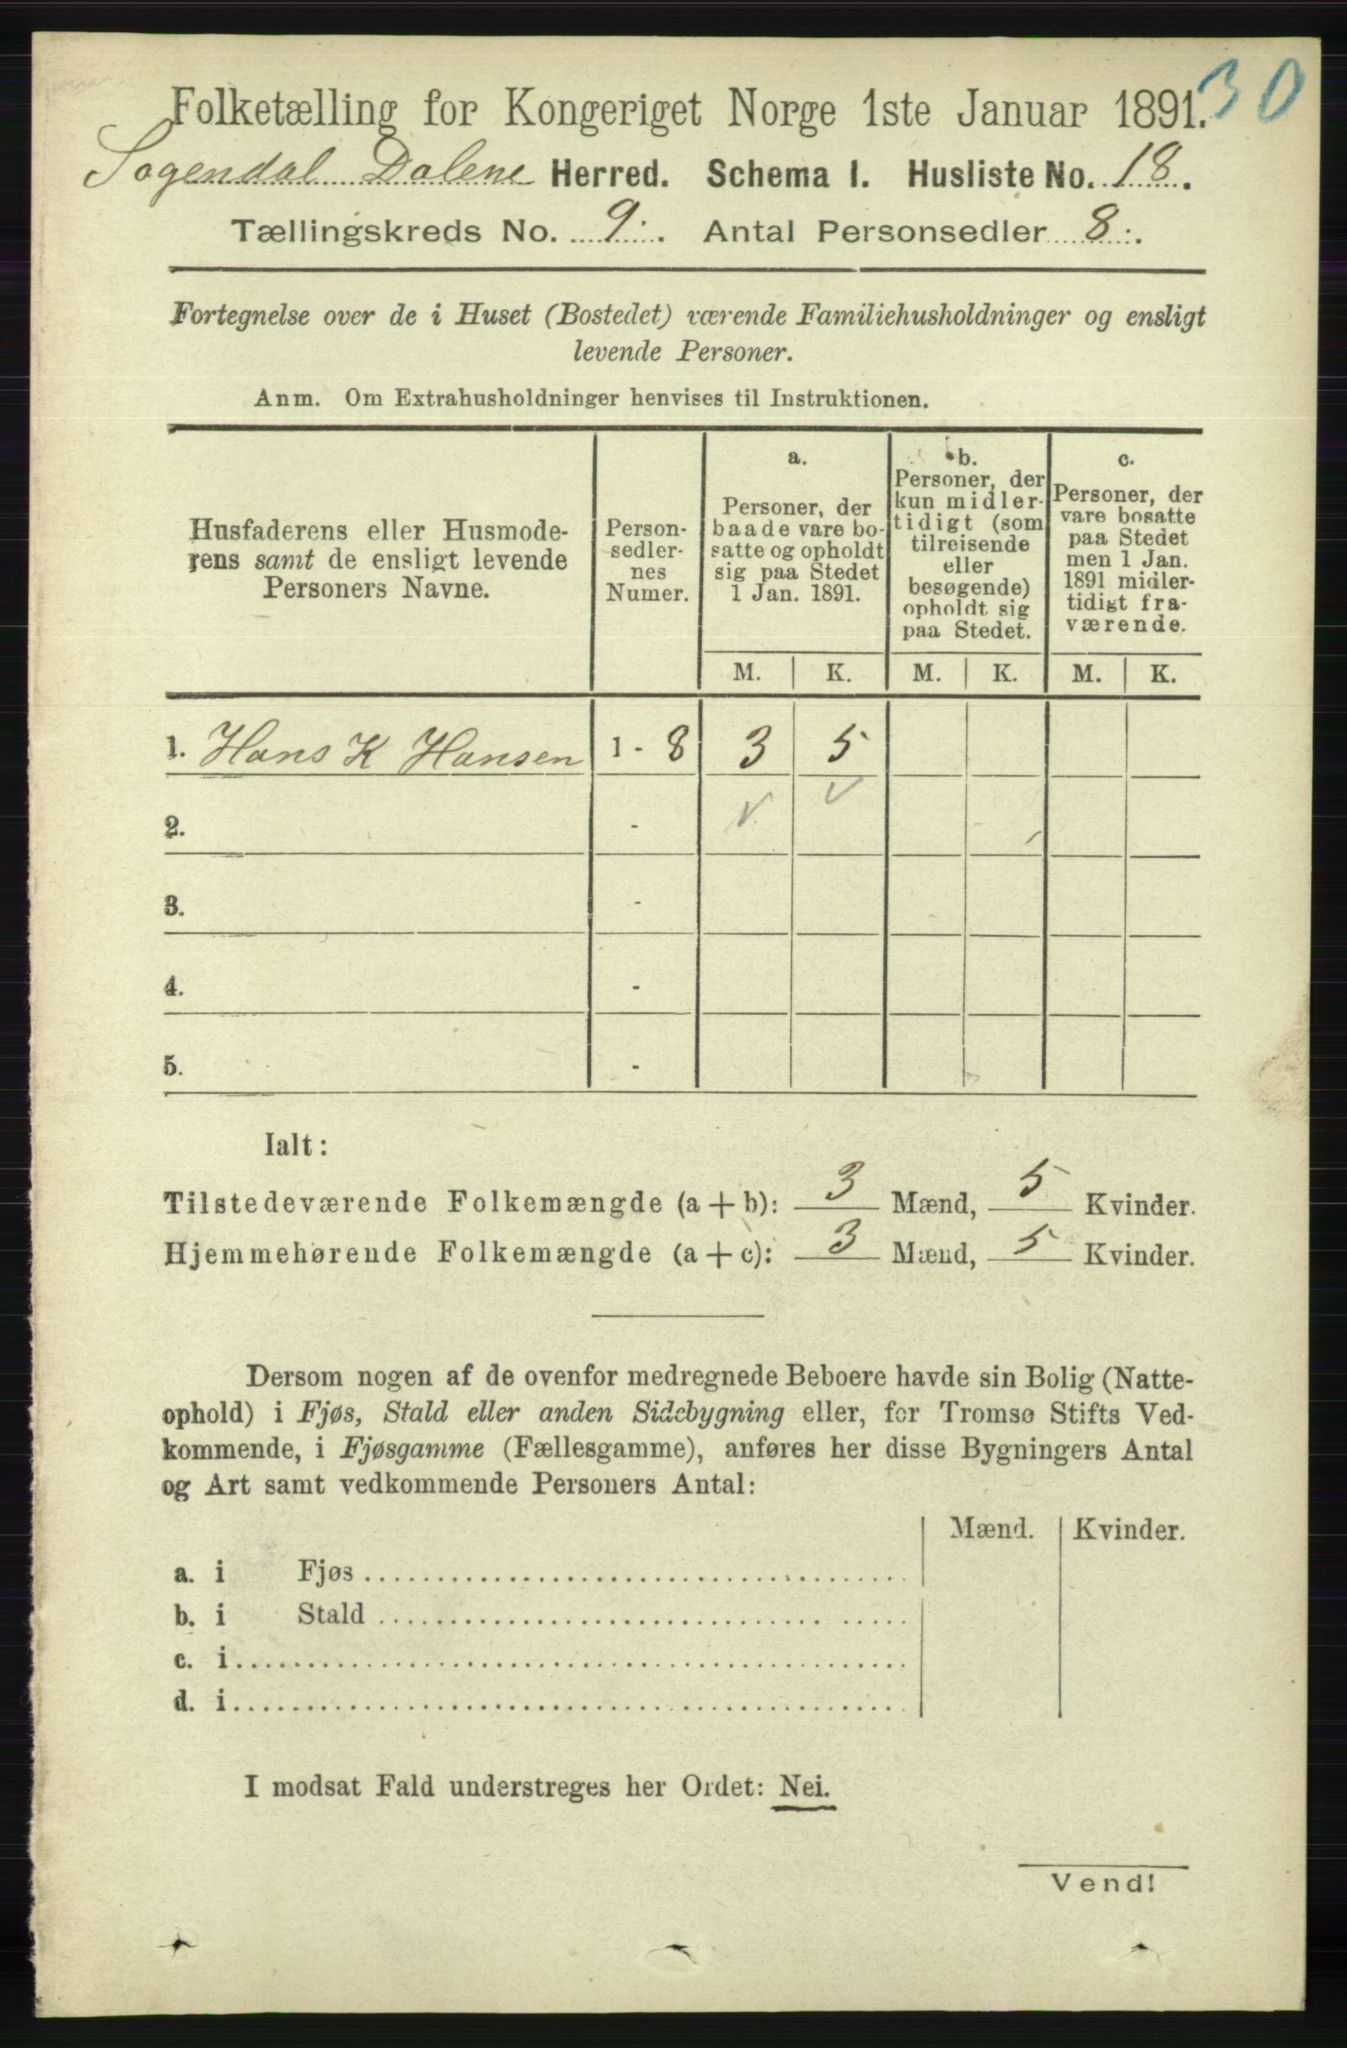 30
Folketælling for Kongeriget Norge 1ste Januar 1891.
Sogendal Dalene Herred. Schema I. Husliste No. 18.
Tællingskreds No. 9. Antal Personsedler 8.
Fortegnelse over de i Huset (Bostedet) værende Familiehusholdninger og ensligt
levende Personer.
Anm. Om Extrahusholdninger henvises til Instruktionen.
Husfaderens eller Husmode-
rens samt de ensligt levende
Personers Navne.
Person-
sedler-
nes
Numer.
a.
Personer, der
baade vare bo-
satte og opholdt
sig paa Stedet
1 Jan. 1891.
b.
Personer, der
kun midler-
tidigt (som
tilreisende
eller
besøgende)
opholdt sig
paa Stedet.
c.
Personer, der
vare bosatte
paa Stedet
men 1 Jan.
1891 midler-
tidigt fra-
værende.
M. K. M. K. M. K.
1. Hans K Hansen 1 - 8 3 5
2. -
3. -
4. -
5. -
Ialt:
Tilstedeværende Folkemængde (a + b): 3 Mænd, 5 Kvinder.
Hjemmehørende Folkemængde (a + c): 3 Mænd, 5 Kvinder.
Dersom nogen af de ovenfor medregnede Beboere havde sin Bolig (Natte-
ophold) i Fjøs, Stald eller anden Sidebygning eller, for Tromsø Stifts Ved-
kommende, i Fjøsgamme (Fællesgamme), anføres her disse Bygningers Antal
og Art samt vedkommende Personers Antal:
Mænd. Kvinder.
a. i Fjøs
b. i Stald
c. i
d. i
I modsat Fald understreges her Ordet: Nei.
Vend!